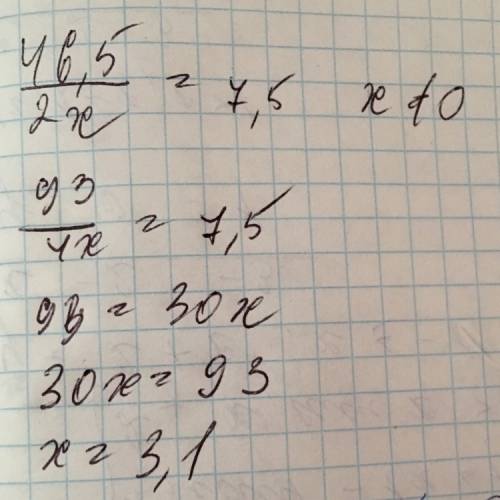 46,5/2x = 7,5 x ≠ 0
93/4x = 7,5
93 = 30x
30x = 93
x = 3,1